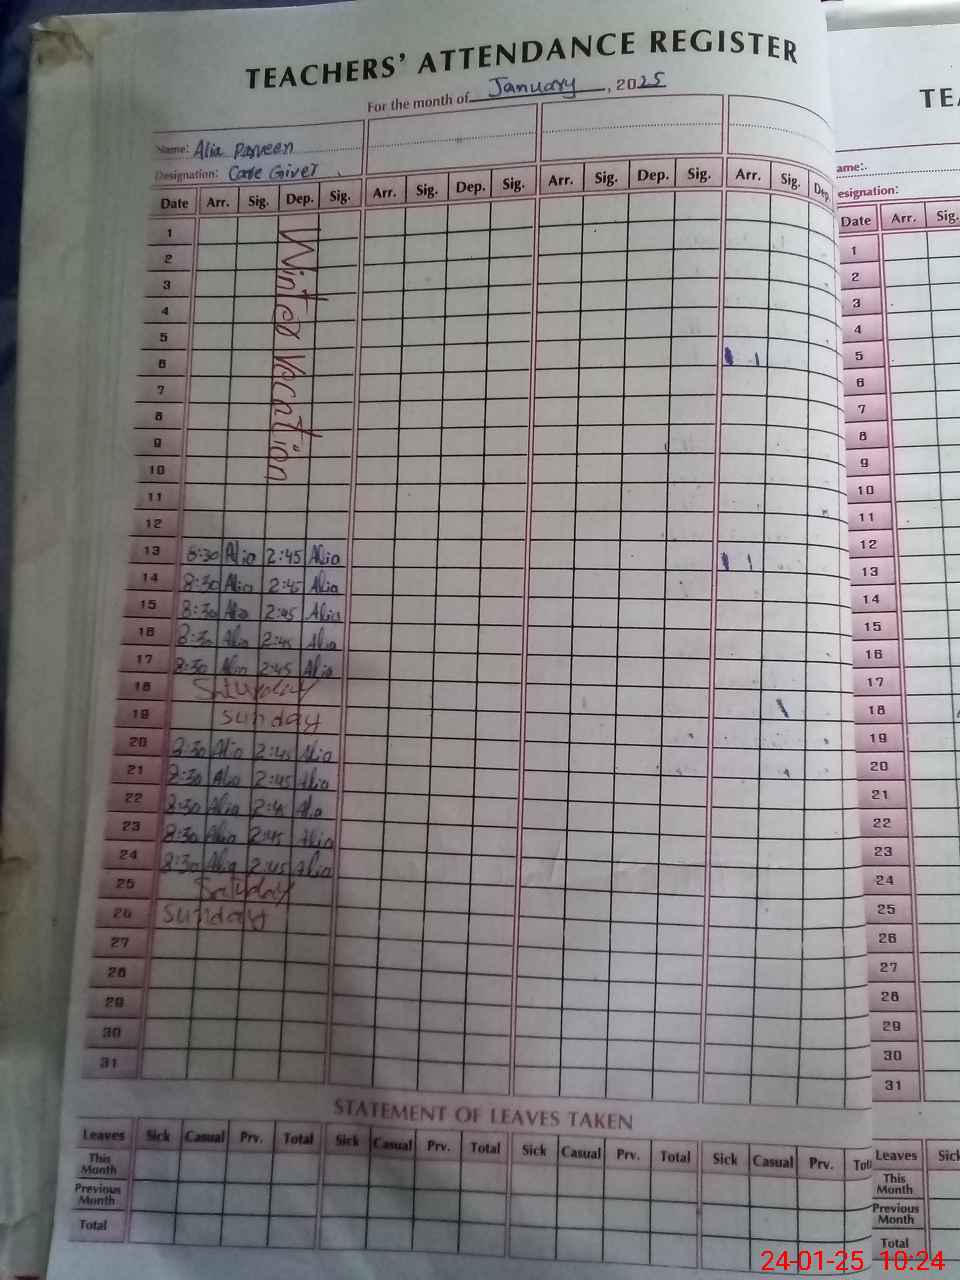 TEACHERS' ATTENDANCE REGISTER
For the month of January, 2025
Name: Alia Parveen
Designation: Care Giver
Date Arr. Sig. Dep. Sig. Arr. Sig. Dep. Sig. Arr. Sig. Dep. Sig. Arr. Sig. Dep.
Winter Vacation
1
2
3
4
5
6
7
8
9
10
11
12
13 8:30 Alia 2:45 Alia
14 8:30 Alia 2:45 Alia
15 8:30 Alia 2:45 Alia
16 8:30 Alia 2:45 Alia
17 8:30 Alia 2:45 Alia
18 Saturday
19 sunday
20 8:30 Alia 2:45 Alia
21 8:30 Alia 2:45 Alia
22 8:30 Alia 2:45 Alia
23 8:30 Alia 2:45 Alia
24 8:30 Alia 2:45 Alia
25 Saturday
26 sunday
27
28
29
30
31
STATEMENT OF LEAVES TAKEN
Leaves Sick Casual Prv. Total Sick Casual Prv. Total Sick Casual Prv. Total Sick Casual Prv.
This Month
Previous Month
Total
TE
ame:
esignation:
Date Arr. Sig.
1
2
3
4
5
6
7
8
9
10
11
12
13
14
15
16
17
18
19
20
21
22
23
24
25
26
27
28
29
30
31
Leaves
This Month
Previous Month
Total
24-01-25 10:24